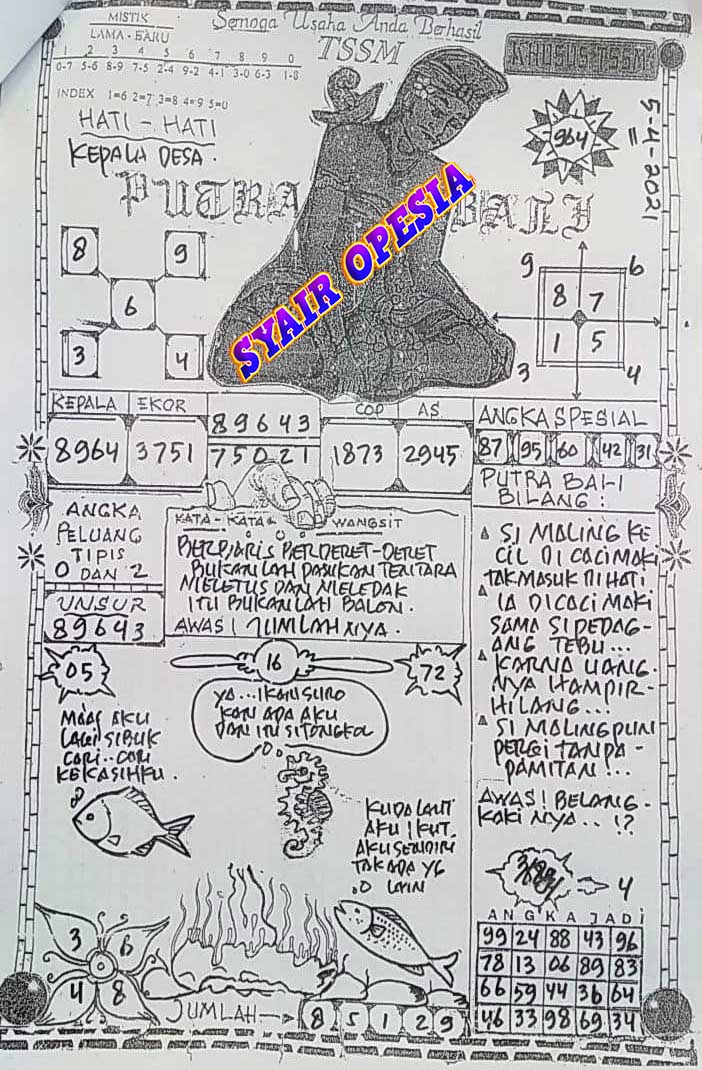 MISTIK
LAMA - BARU
1 2 3 4 5 6 7 8 9 0
0-7 5-6 8-9 7-5 2-4 9-2 4-1 3-0 6-3 1-8
INDEX 1=6 2=7 3=8 4=9 5=0
HATI - HATI
KEPALA DESA.
Semoga Usaha Anda Berhasil
TSSM
KHUSUS TSSM
964
5-4-2021
PUTRA BALI
SYAIR OPESIA
8 9
6
3 4
9 6
8 7
1 5
3 4
KEPALA EKOR
8964 3751
89643
75021
COP AS
1873 2945
ANGKA SPESIAL
87 95 60 42 31
ANGKA
PELUANG
TIPIS
0 DAN 2
UNSUR
89643
KATA - KATA WANGSIT
BERBARIS BERDERET-DERET
BUKANLAH PASUKAN TENTARA
MELETUS DAN MELEDAK
ITU BUKANLAH BALON.
AWAS! JUMLAH NYA.
PUTRA BALI
BILANG:
SI MALING KE
CIL DI CACI MAKI
TAK MASUK DI HATI
IA DI CACI MAKI
SAMA SI PEDAG-
ANG TEBU...
KARNA UANG-
NYA HAMPIR-
HILANG..!
SI MALING PUN
PERGI TANPA-
PAMITAN!...
AWAS! BELANG-
KAKI NYA..!?
05
16
72
MAAF AKU
LAGI SIBUK
CARI..CARI
KEKASIHKU.
YA...IKAN SURO
KAN ADA AKU
DAN ITU SI TONGKOL
KUDA LAUT
AKU IKUT.
AKU SENDIRI
TAK ADA YG
LAIN
4
ANGKA JADI
99 24 88 43 96
78 13 06 89 83
66 59 44 36 64
46 33 98 69 34
3 6
4 8
JUMLAH 8 5 1 2 9